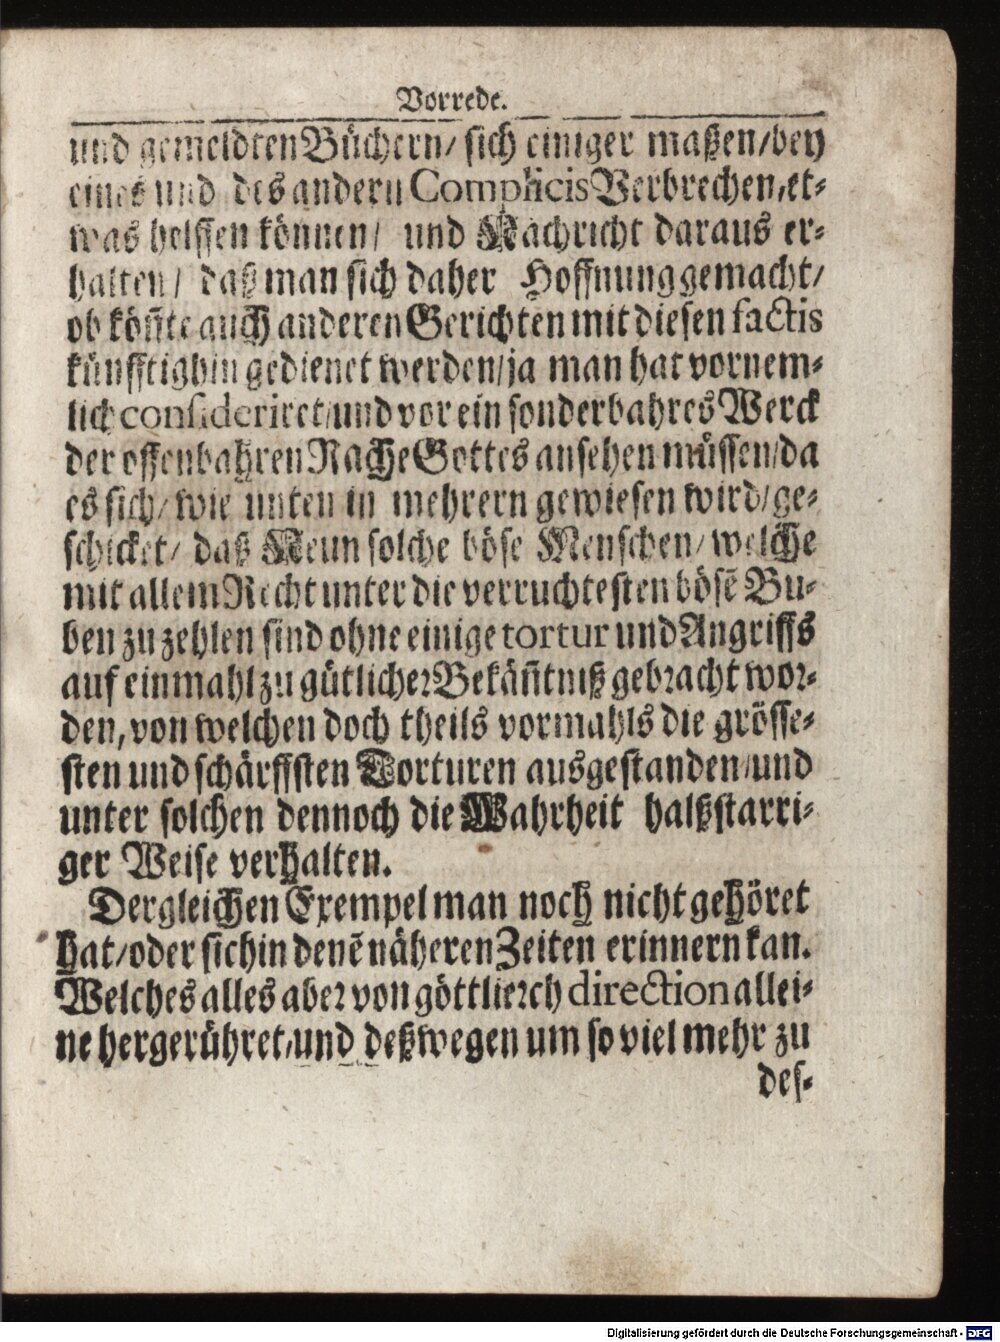 Vorrede.
und gemeldten Büchern/ sich einiger maßen/bey
eines und des andern Complicis Verbrechen,et-
was helffen können/ und Nachricht daraus er-
halten/ daß man sich daher Hoffnung gemacht/
ob kön̄te auch anderen Gerichten mit diesen factis
künfftighin gedienet werden/ja man hat vornem-
lich consideriret/und vor ein sonderbahres Werck
der offenbahren Rache Gottes ansehen müssen/da
es sich/ wie unten in mehrern gewiesen wird/ge-
schicket/ daß Neun solche böse Menschen/ welche
mit allem Recht unter die verruchtesten bösē Bu-
ben zu zehlen sind ohne einige tortur und Angriffs
auf einmahl zu gütlicher Bekän̄tniß gebracht wor-
den, von welchen doch theils vormahls die grösse-
sten und schärffsten Torturen ausgestanden/und
unter solchen dennoch die Wahrheit halßstarri-
ger Weise verhalten.
Dergleichen Exempel man noch nicht gehöret
hat/oder sich in denē näheren Zeiten erinnern kan.
Welches alles aber von göttlierch direction allei-
ne hergerühret/und deßwegen um so viel mehr zu
des-
Digitalisierung gefördert durch die Deutsche Forschungsgemeinschaft - DFG